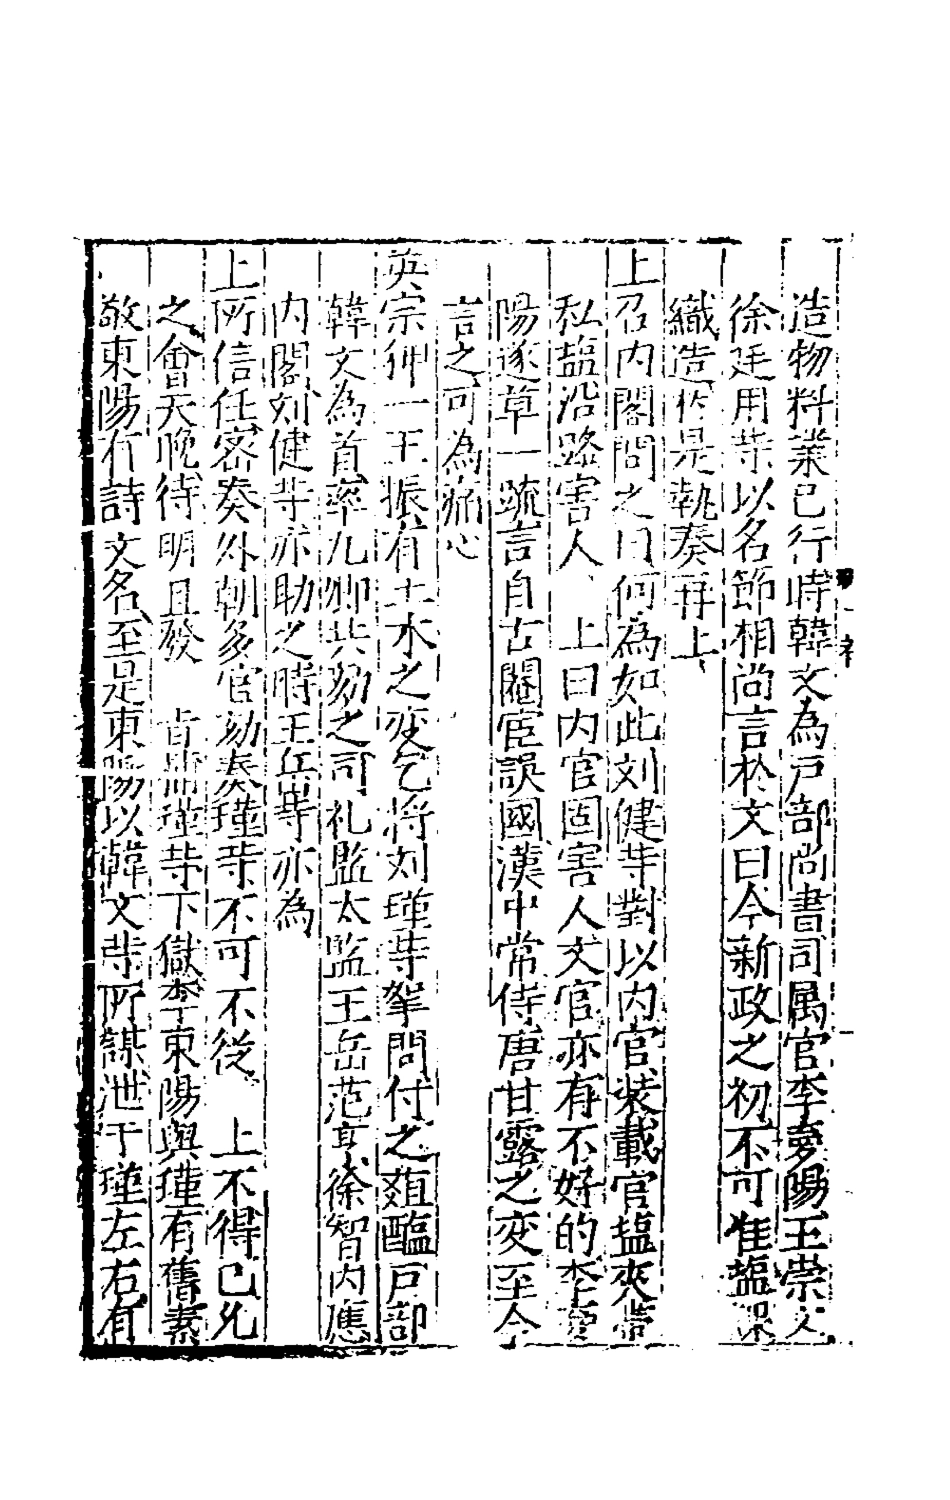 造物料業已行時韓文為戸部尚書司属官李夢陽王崇文
徐廷用䓁以名節相尚言於文曰今新政之初不可准塩課
織造於是執奏再上
上召内閣問之曰何為如此刘健䓁對以内官装載官塩夾帶
私塩沿路害人 上曰内官固害人文官亦有不好的李夢
陽遂草一疏言自古閹宦誤國漢中常侍唐甘露之変至今
言之可為痛心
英宗神一王振有土木之変乞将刘瑾䓁拏問付之葅醢戸部
韓文為首率九卿共劾之司礼監太監王岳范亨徐智内應
内閣刘健䓁亦助之時王岳䓁亦為
上所信任密奏外朝多官劾奏瑾䓁不可不從 上不得已允
之會天晚待明旦發 㫖捕瑾䓁下獄李東陽與瑾有舊素
敬東陽有詩文名至是東陽以韓文䓁所謀泄于瑾左右有